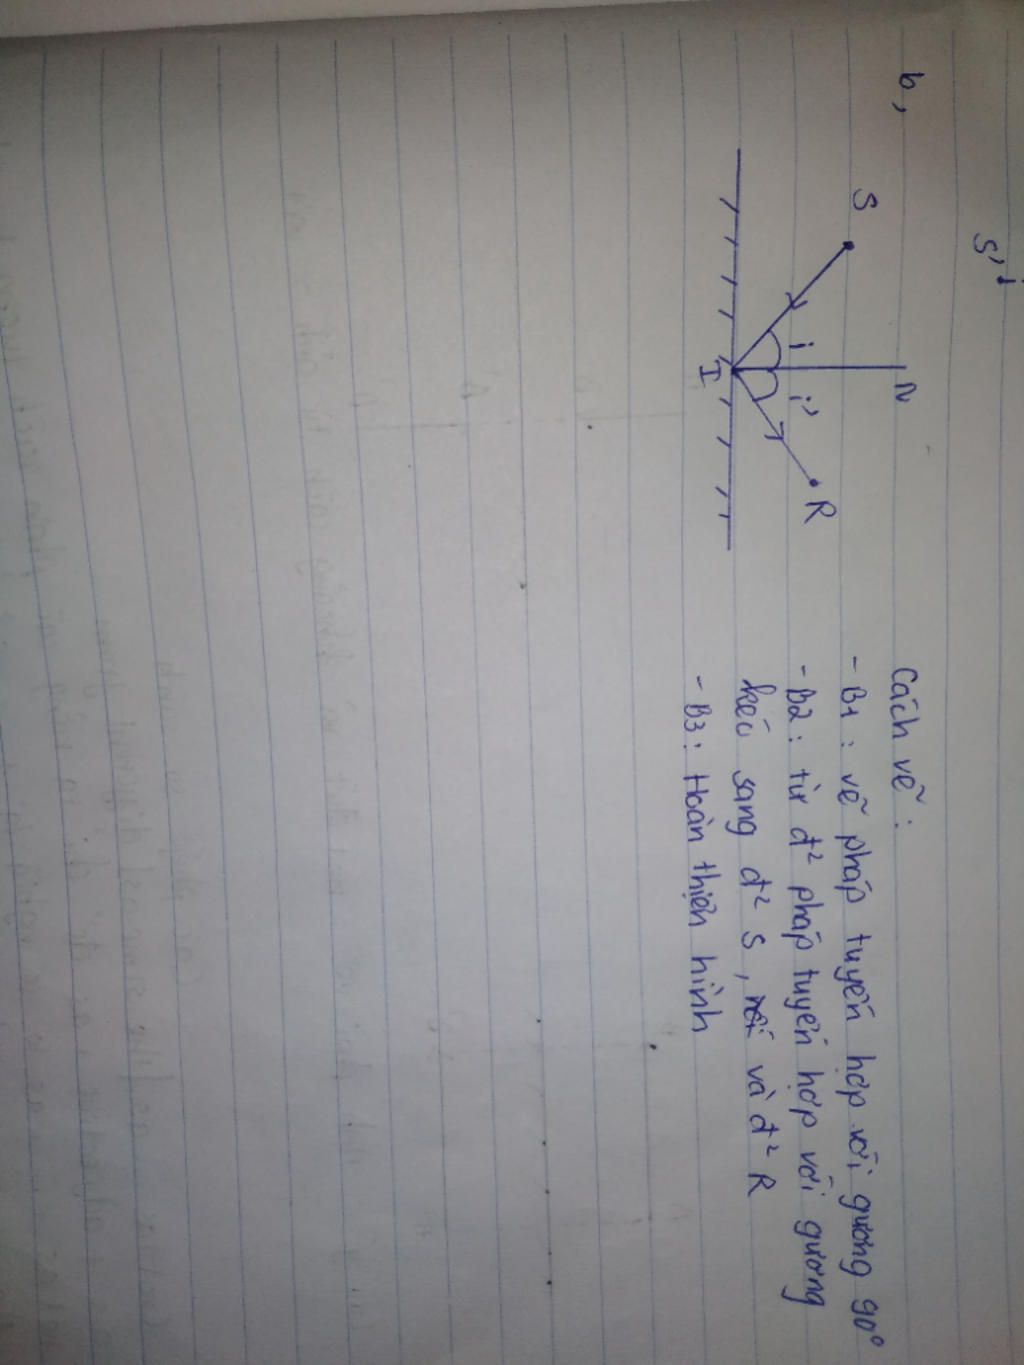 S'
b,
S
N
R
i
i'
I
Cách vẽ :
- B1 : vẽ pháp tuyến hợp với gương 90°
- B2 : từ đ² pháp tuyến hợp với gương
kéo sang đ² S, và đ² R
- B3 : Hoàn thiện hình